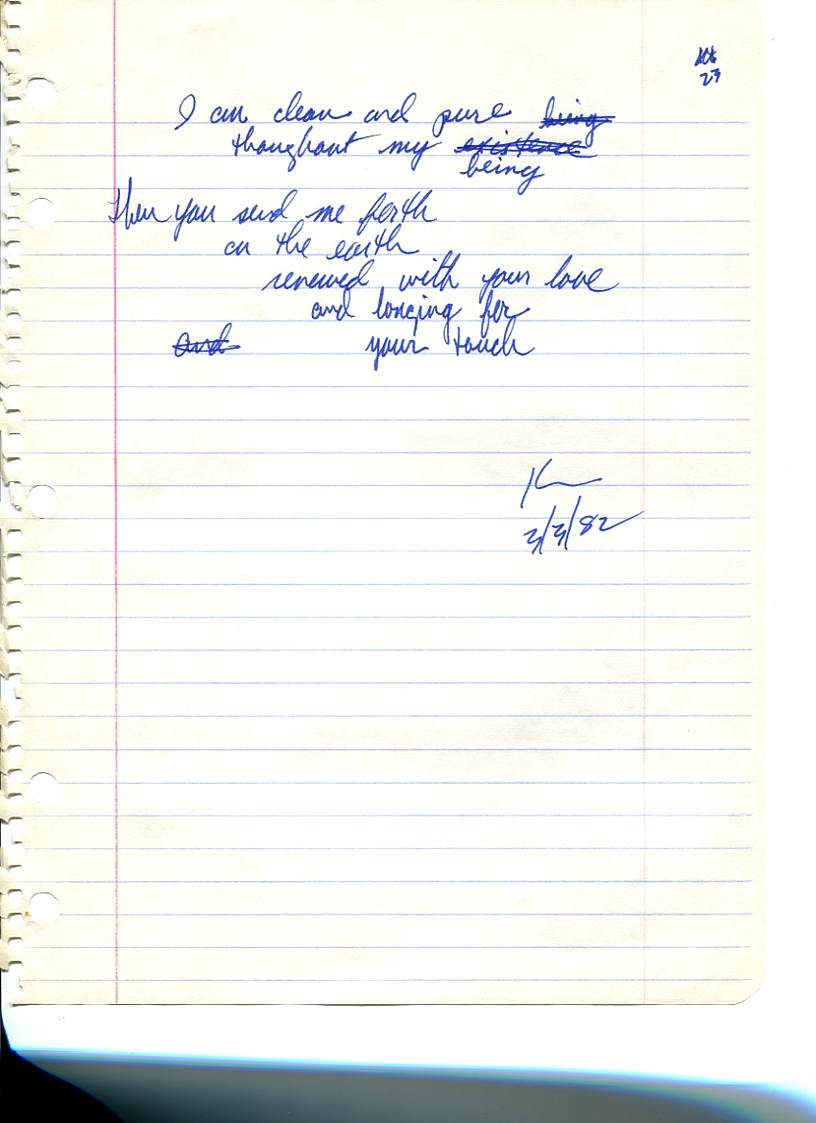 23
I am clean and pure being
thoughout my existence
being
then you send me forth
on the earth
renewed with your love
and longing for
and your touch
3/3/82